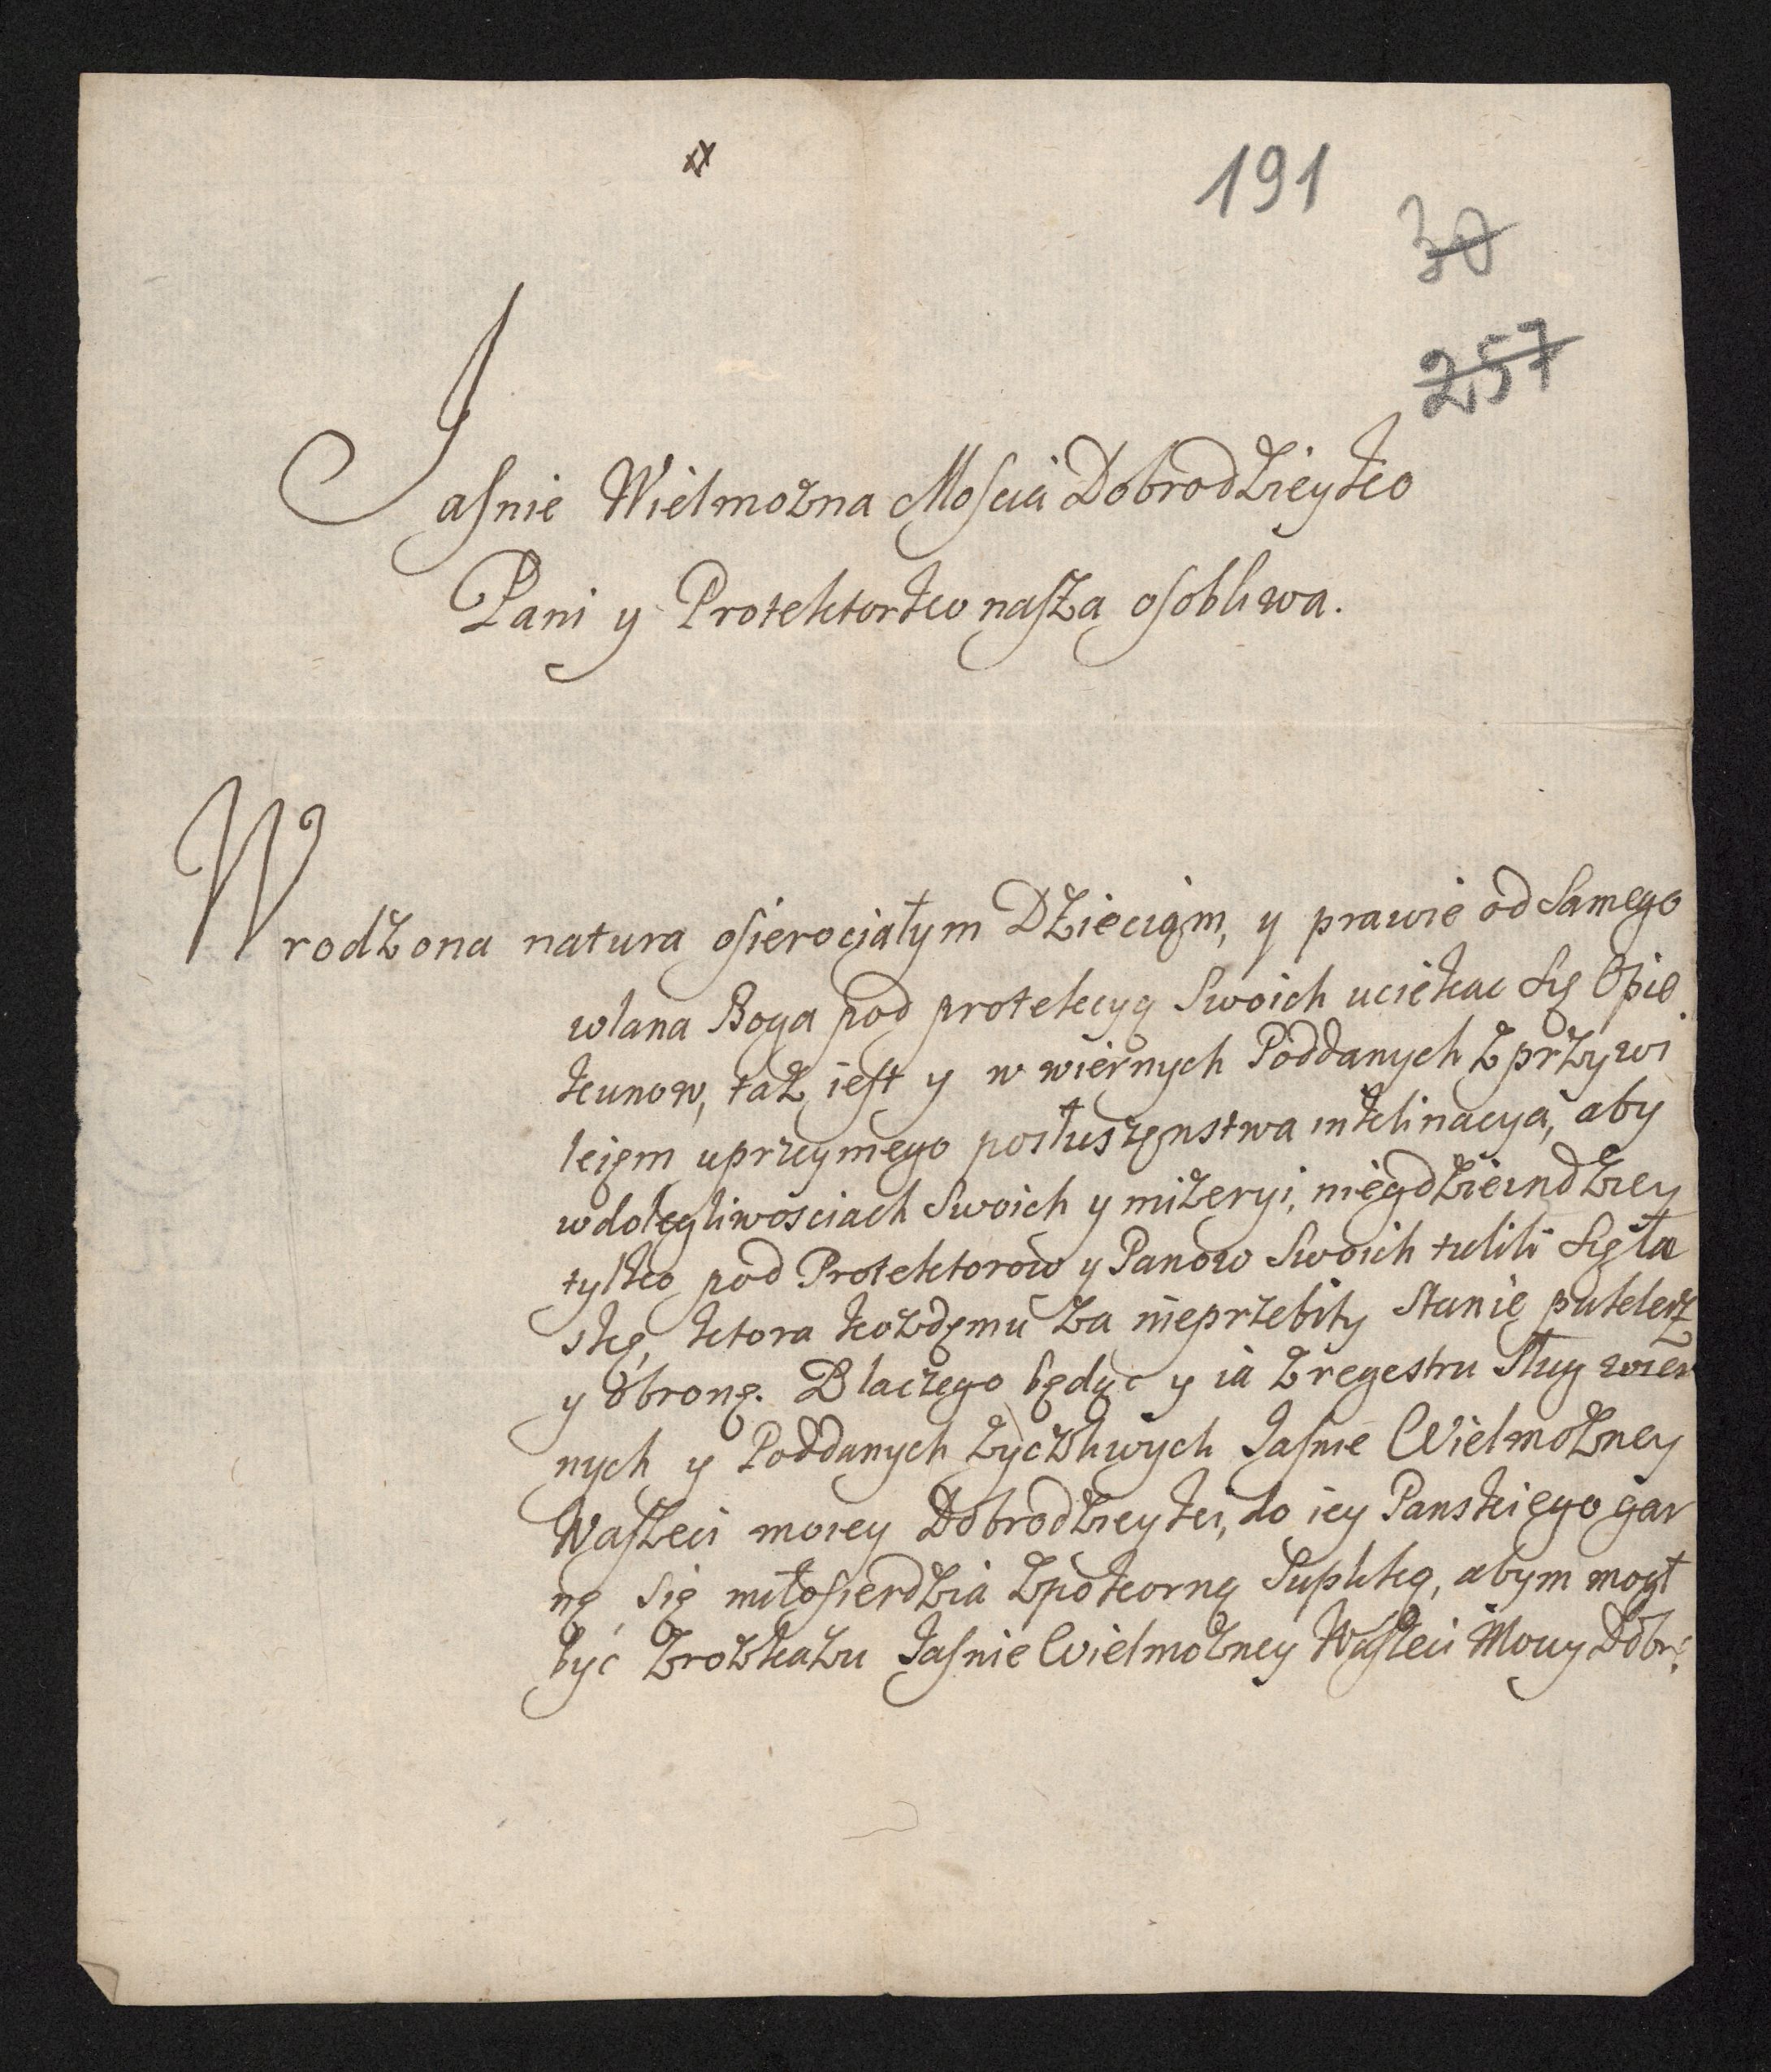 191
30
257
Jasnie Wielmozna Moscia Dobrodzieyko
Pani y Protektorko nasza osobliwa.
Wrodzona natura osierociałym Dzieciąm, y prawie od Samego
wlana Boga pod protekcyą Swoich uciekac Się Opie
kunow, taż iest y w wiernych Poddanych z przywi
leięm uprzeymego posłuszęnstwa inklinacya, aby
w dolęgliwosciach Swoich y mizeryi, niegdzieindziey
tylko pod Protektorow y Panow Swoich tulili Się ła
skę, ktora kozdęmu za nieprzebity Stanie puklerz
y obronę. Dlaczego będąc y ia z regestru Sług wier
nych y Poddanych zyczliwych Jasnie Wielmozney
Waszeci moiey Dobrodzieyki, do iey Panskiego gar
nę się miłosierdzia z pokorną Supliką, abym mogł
być z rozkazu Jasnie Wielmozney Waszeci Moiey Dobr: